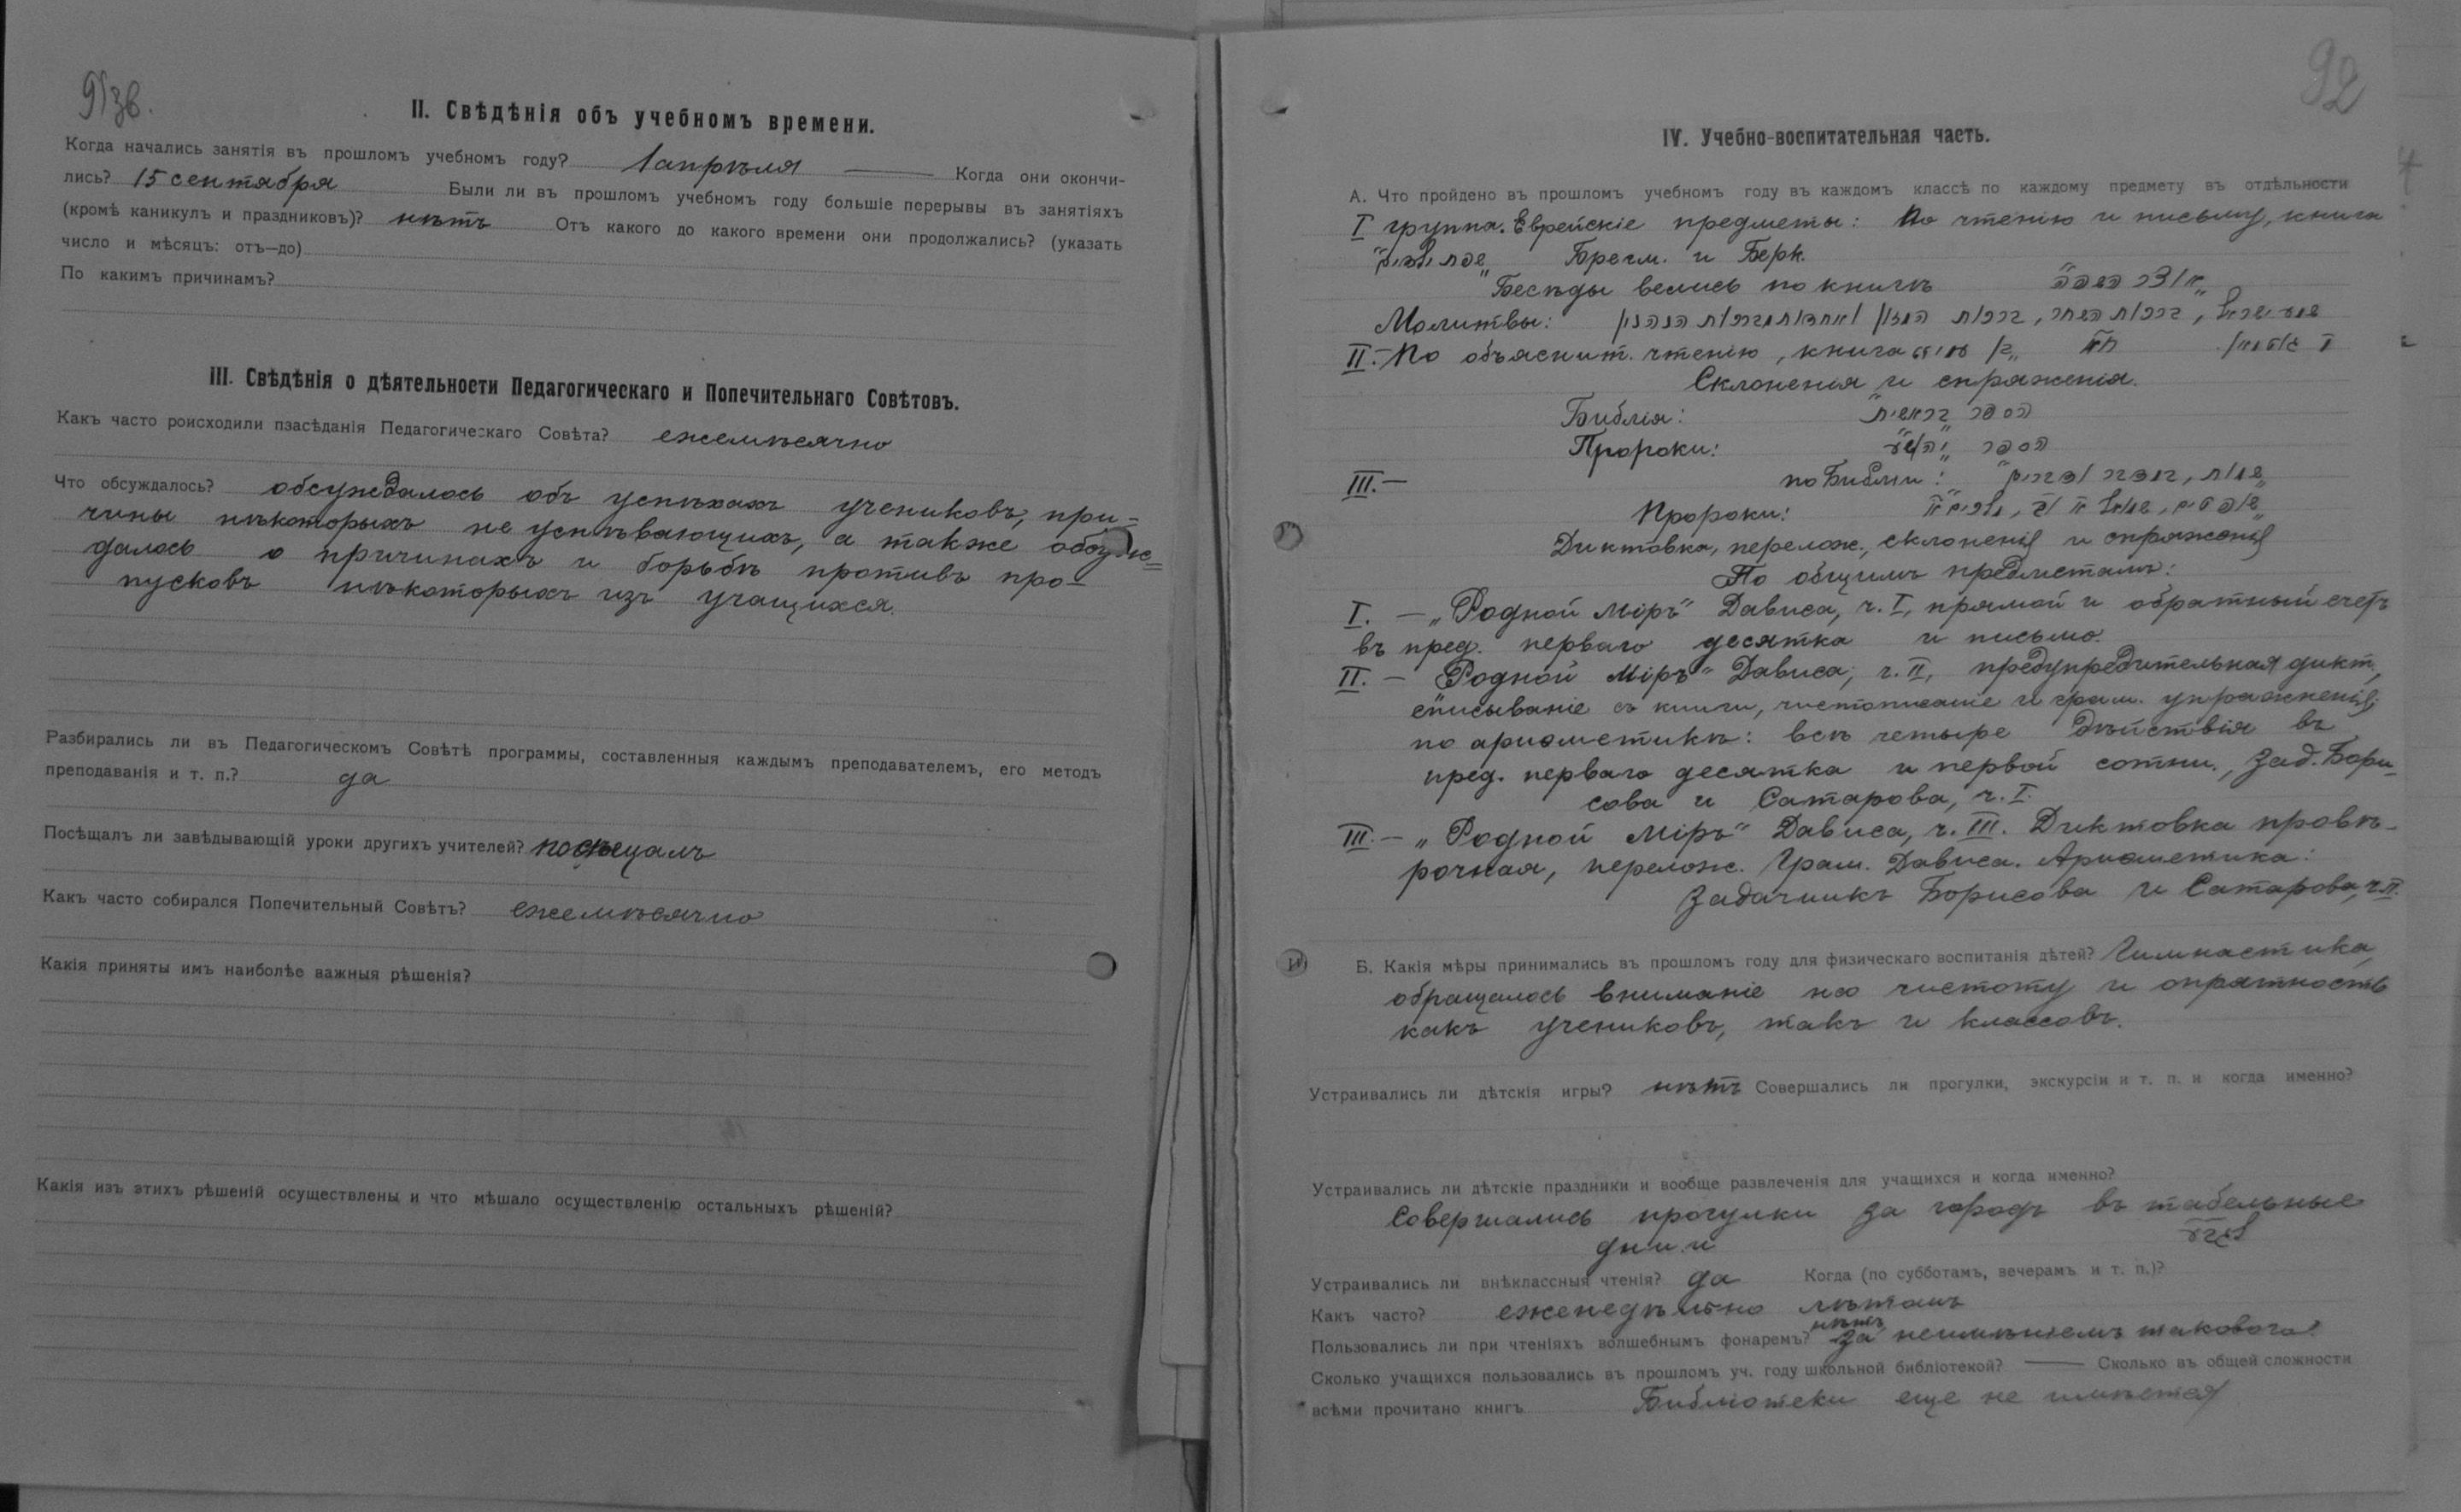 91 зв.
II. Свѣдѣнія объ учебномъ времени.
Когда начались занятія въ прошломъ учебномъ году? 1 апрѣля — Когда они окончи-
лись? 15 сентября Были ли въ прошломъ учебномъ году большіе перерывы въ занятіяхъ
(кромѣ каникулъ и праздниковъ)? нѣтъ Отъ какого до какого времени они продолжались? (указать
число и мѣсяцъ: отъ—до)
По какимъ причинамъ?
III. Свѣдѣнія о дѣятельности Педагогическаго и Попечительнаго Совѣтовъ.
Какъ часто роисходили пзасѣданія Педагогическаго Совѣта? ежемѣсячно
Что обсуждалось? обсуждалось объ успѣхахъ учениковъ, при-
чины нѣкоторыхъ не успѣвающихъ, а также обсуж-
далось о причинахъ и борьбѣ противъ про-
пусковъ нѣкоторыхъ изъ учащихся.
Разбирались ли въ Педагогическомъ Совѣтѣ программы, составленныя каждымъ преподавателемъ, его методъ
преподаванія и т. п.? да
Посѣщалъ ли завѣдывающій уроки другихъ учителей? посѣщалъ
Какъ часто собирался Попечительный Совѣтъ? ежемѣсячно
Какія приняты имъ наиболѣе важныя рѣшенія?
Какія изъ этихъ рѣшеній осуществлены и что мѣшало осуществленію остальныхъ рѣшеній?
92
4
IV. Учебно-воспитательная часть.
А. Что пройдено въ прошломъ учебномъ году въ каждомъ классѣ по каждому предмету въ отдѣльности
I группа. Еврейскіе предметы: По чтенію и письму, книга
Брегм. и Берк.
Бесѣды велись по книгѣ
Молитвы:
II.- По объяснит. чтенію, книга
Склоненія и спряженія.
Библія: ספר „בראשית"
Пророки: ספר „יהושע"
III.— по Библіи: „שמות, במדבר ודברים"
Пророки: „שופטים, שמואל
Диктовка, перелож., склоненія и спряженія
По общимъ предметамъ:
I. — „Родной Міръ" Дависа, ч. I, прямой и обратный счетъ
въ пред. перваго десятка и письмо.
II. — Родной Міръ" Дависа, ч. II, предупредительная дикт.,
списываніе съ книги, чистописаніе и грам. упражненія;
по ариѳметикѣ: всѣ четыре дѣйствія въ
пред. перваго десятка и первой сотни., Зад. Бори-
сова и Сатарова, ч. I.
III.— „Родной Міръ" Дависа, ч. III. Диктовка провѣ-
рочная, перелож. Грам. Дависа. Ариѳметика:
Задачникъ Борисова и Сатарова, ч. II.
Б. Какія мѣры принимались въ прошломъ году для физическаго воспитанія дѣтей? Гимнастика,
обращалось вниманіе на чистоту и опрятность
какъ учениковъ, такъ и классовъ.
Устраивались ли дѣтскія игры? нѣтъ Совершались ли прогулки, экскурсіи и т. п. и когда именно?
Устраивались ли дѣтскіе праздники и вообще развлеченія для учащихся и когда именно?
Совершались прогулки за городъ въ табельные
дни и
Устраивались ли внѣклассныя чтенія? да Когда (по субботамъ, вечерамъ и т. п.)?
Какъ часто? еженедѣльно лѣтомъ
Пользовались ли при чтеніяхъ волшебнымъ фонаремъ? нѣтъ за неимѣніемъ такового
Сколько учащихся пользовались въ прошломъ уч. году школьной библіотекой? — Сколько въ общей сложности
всѣми прочитано книгъ Библіотеки еще не имѣется